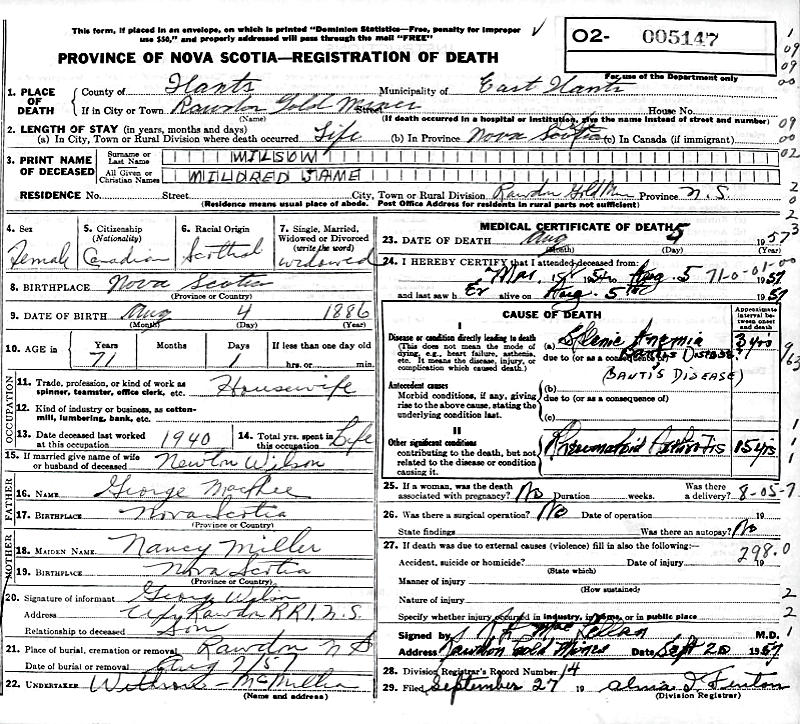 This form, if placed in an envelope, on which is printed "Dominion Statistics—Free, penalty for improper
use $50," and properly addressed will pass through the mail "FREE"
02- 005147
For use of the Department only
PROVINCE OF NOVA SCOTIA—REGISTRATION OF DEATH
1. PLACE OF DEATH County of Hants Municipality of East Hants
If in City or Town Rawdon Gold Mines Street House No.
(Name) (If death occurred in a hospital or institution, give the name instead of street and number)
2. LENGTH OF STAY (in years, months and days)
(a) In City, Town or Rural Division where death occurred Life (b) In Province Nova Scotia (c) In Canada (if immigrant)
3. PRINT NAME OF DECEASED Surname or Last Name WILSON
All Given or Christian Names MILDRED JANE
RESIDENCE No. Street City, Town or Rural Division Rawdon Gold Mines Province N.S.
(Residence means usual place of abode. Post Office Address for residents in rural parts not sufficient)
4. Sex Female
5. Citizenship (Nationality) Canadian
6. Racial Origin
7. Single, Married, Widowed or Divorced (write the word) widowed
8. BIRTHPLACE Nova Scotia
(Province or Country)
9. DATE OF BIRTH Aug 4 1886
(Month) (Day) (Year)
10. AGE in Years Months Days If less than one day old
71 1 hrs. or min.
OCCUPATION
11. Trade, profession, or kind of work as spinner, teamster, office clerk, etc. Housewife
12. Kind of industry or business, as cotton-mill, lumbering, bank, etc.
13. Date deceased last worked at this occupation 1940 14. Total yrs. spent in this occupation Life
15. If married give name of wife or husband of deceased Newton Wilson
FATHER
16. NAME George MacPhee
17. BIRTHPLACE Nova Scotia
(Province or Country)
MOTHER
18. MAIDEN NAME Nancy Miller
19. BIRTHPLACE Nova Scotia
(Province or Country)
20. Signature of informant George Wilson
Address Rawdon RR1, N.S.
Relationship to deceased Son
21. Place of burial, cremation or removal Rawdon N S
Date of burial or removal Aug 7/57
22. UNDERTAKER
(Name and address)
MEDICAL CERTIFICATE OF DEATH
23. DATE OF DEATH Aug 5 1957
(Month) (Day) (Year)
24. I HEREBY CERTIFY that I attended deceased from:
Mar. 1954 to Aug. 5 1957
71-0-01-00
and last saw her alive on Aug. 5th 1957
CAUSE OF DEATH
Approximate interval between onset and death
I
Disease or condition directly leading to death (This does not mean the mode of dying, e.g., heart failure, asthenia, etc. It means the disease, injury, or complication which caused death.)
(a) Splenic Anemia 3 yrs
due to (or as a consequence of)
Banti's Disease
(BANTI'S DISEASE)
Antecedent causes
Morbid conditions, if any, giving rise to the above cause, stating the underlying condition last.
(b)
due to (or as a consequence of)
(c)
II
Other significant conditions contributing to the death, but not related to the disease or condition causing it.
Rheumatoid Arthritis 15 yrs
25. If a woman, was the death associated with pregnancy? No Duration weeks. Was there a delivery? 8-05-7
26. Was there a surgical operation? No Date of operation 19
State findings Was there an autopsy? No
27. If death was due to external causes (violence) fill in also the following:—
298.0
Accident, suicide or homicide? Date of injury 19
(State which)
Manner of injury
(How sustained)
Nature of injury
Specify whether injury occurred in industry, in home, or in public place
Signed by MacLellan M.D.
Address Rawdon Gold Mines Date Sept 20 1957
28. Division Registrar's Record Number 14
29. Filed September 27 19
(Division Registrar)